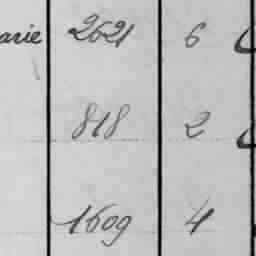 arie 2621 6
818 2
1609 4